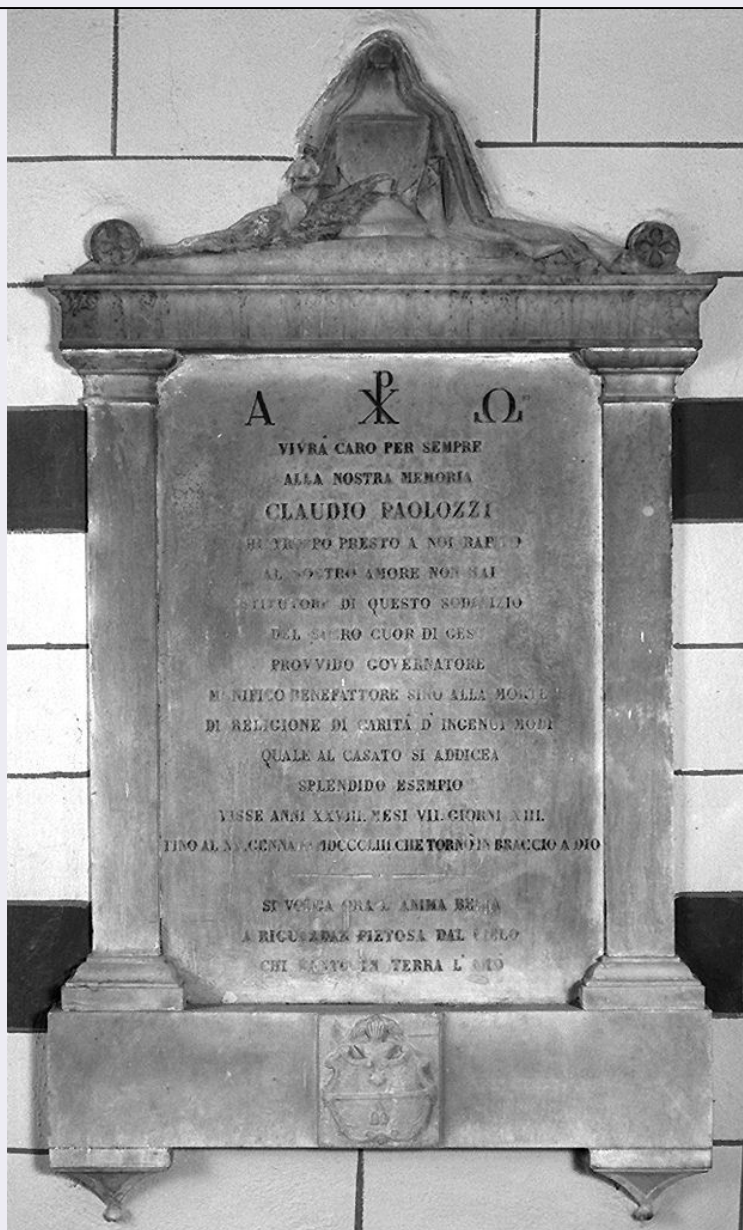 Α ☧ Ω
VIVRÁ CARO PER SEMPRE
ALLA NOSTRA MEMORIA
CLAUDIO PAOLOZZI
TROPPO PRESTO A NOI RAPITO
AL NOSTRO AMORE NON MAI
DI QUESTO SODALIZIO
DEL SACRO CUOR DI GESÙ
PROVVIDO GOVERNATORE
MUNIFICO BENEFATTORE SINO ALLA MORTE
DI RELIGIONE DI CARITÁ D' INGENUI MODI
QUALE AL CASATO SI ADDICEA
SPLENDIDO ESEMPIO
VISSE ANNI XXVIII. MESI VII. GIORNI XIII.
AL GENNAIO MDCCCLIII CHE TORNÒ IN BRACCIO A DIO
SI VOLGA ORA L' ANIMA BELLA
A RIGUARDAR PIETOSA DAL CIELO
CHI TANTO IN TERRA L'